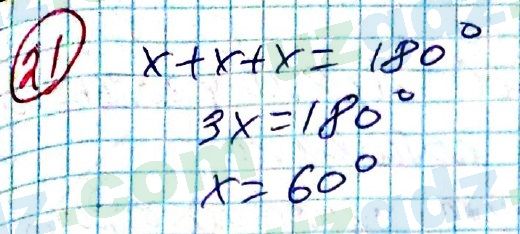 21 x+x+x= 180°
3x=180°
x= 60°